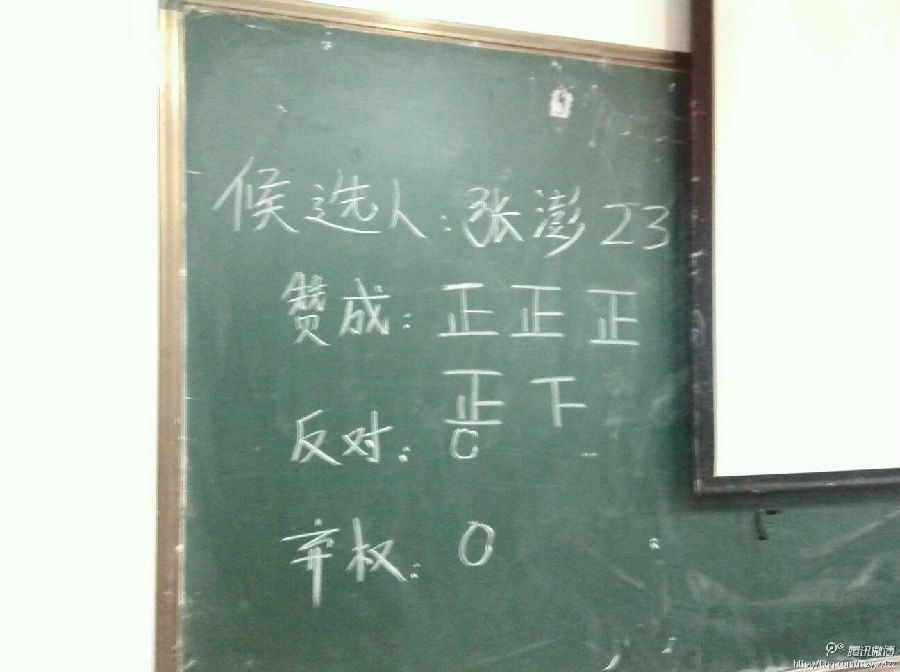 候选人:张澎 23
赞成:正正正
正下
反对:0
弃权:0
腾讯微博